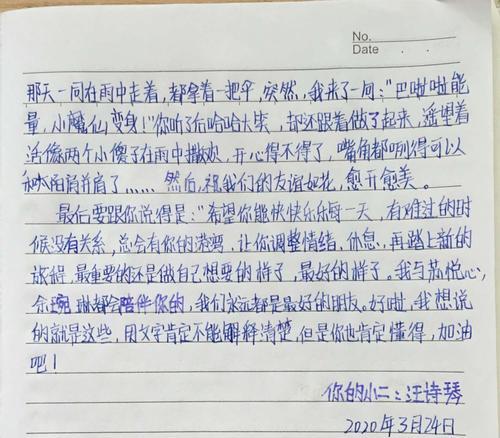 No.
Date . .
那天一同在雨中走着，都拿着一把伞，突然，我来了一句："巴啦啦能
量，小魔仙变身！"你听了后哈哈大笑，却还跟着做了起来，遥望着
活像两个小傻子在雨中撒欢，开心得不得了，嘴角都咧得可以
和太阳肩并肩了……然后，祝我们的友谊如花，愈开愈美。
最后要跟你说得是："希望你能快快乐乐每一天，有难过的时
候没有关系，总会有你的港湾，让你调整情绪、休息、再踏上新的
旅程，最重要的还是做自己想要的样子，最好的样子。我与苏悦心，
余琳都会陪伴你的，我们永远都是最好的朋友。好啦，我想说
的就是这些，用文字肯定不能解释清楚，但是你也肯定懂得，加油
吧！
你的小二：汪诗琴
2020年3月24日